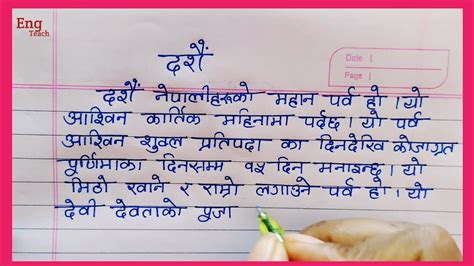 Eng
Teach
Date
Page
दशैं
दशैं नेपालीहरूको महान पर्व हो । यो
आश्विन कार्तिक महिनामा पर्दछ । यो पर्व
आश्विन शुक्ल प्रतिपदा का दिनदेखि कोजाग्रत
पूर्णिमाका दिनसम्म १५ दिन मनाइन्छ । यो
मिठो खाने र राम्रो लगाउने पर्व हो । यो
देवी देवताको पूजा